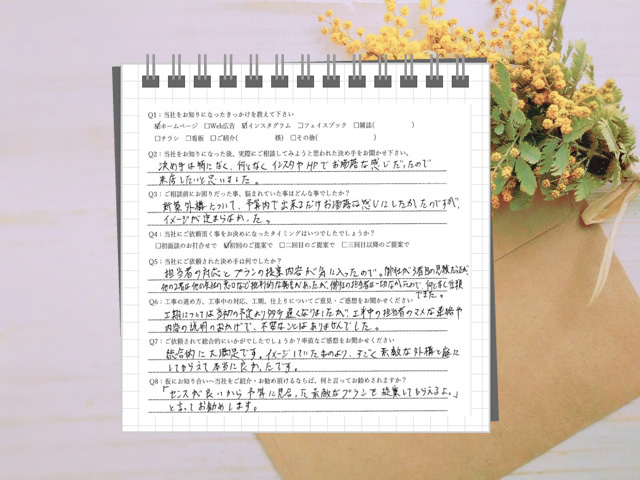 Q1：当社をお知りになったきっかけを教えて下さい
☑ホームページ □Web広告 ☑インスタグラム □フェイスブック □雑誌( )
□チラシ □看板 □ご紹介( 様) □その他( )
Q2：当社をお知りになった後、実際にご相談してみようと思われた決め手をお聞かせ下さい。
決め手は特になく、何となくインスタやHPでお洒落な感じだったので
来店したいと思いました。
Q3：ご相談前にお困りだった事、悩まれていた事はどんな事でしたか？
新築外構について、予算内で出来るだけお洒落な感じにしたかったのですが、
イメージが定まらなかった。
Q4：当社にご依頼頂く事をお決めになったタイミングはいつでしたでしょうか？
□初面談のお打合せで ☑初回のご提案で □二回目のご提案で □三回目以降のご提案で
Q5：当社にご依頼された決め手は何でしたか？
担当者の対応とプランの提案内容が気に入ったので。御社が3者目の見積だったが
他の2者は他の会社の悪口など批判的な発言があったが、御社の担当者は一切なかったので、何となく信頼
できた。
Q6：工事の進め方、工事中の対応、工期、仕上りについてご意見・ご感想をお聞かせください
工期については当初の予定より少々遅くなりましたが、工事中の担当者のマメな連絡や
内容の説明のおかげで、不安なことはありませんでした。
Q7：ご依頼されて総合的にいかがでしたでしょうか？率直なご感想をお聞かせください
総合的に大満足です。イメージしていたものより、すごく素敵な外構と庭に
してもらえて本当に良かったです。
Q8：仮にお知り合いへ当社をご紹介・お勧め頂けるならば、何と言ってお勧めされますか？
「センスが良いから予算に見合った素敵なプランを提案してもらえるよ。」
と言ってお勧めします。